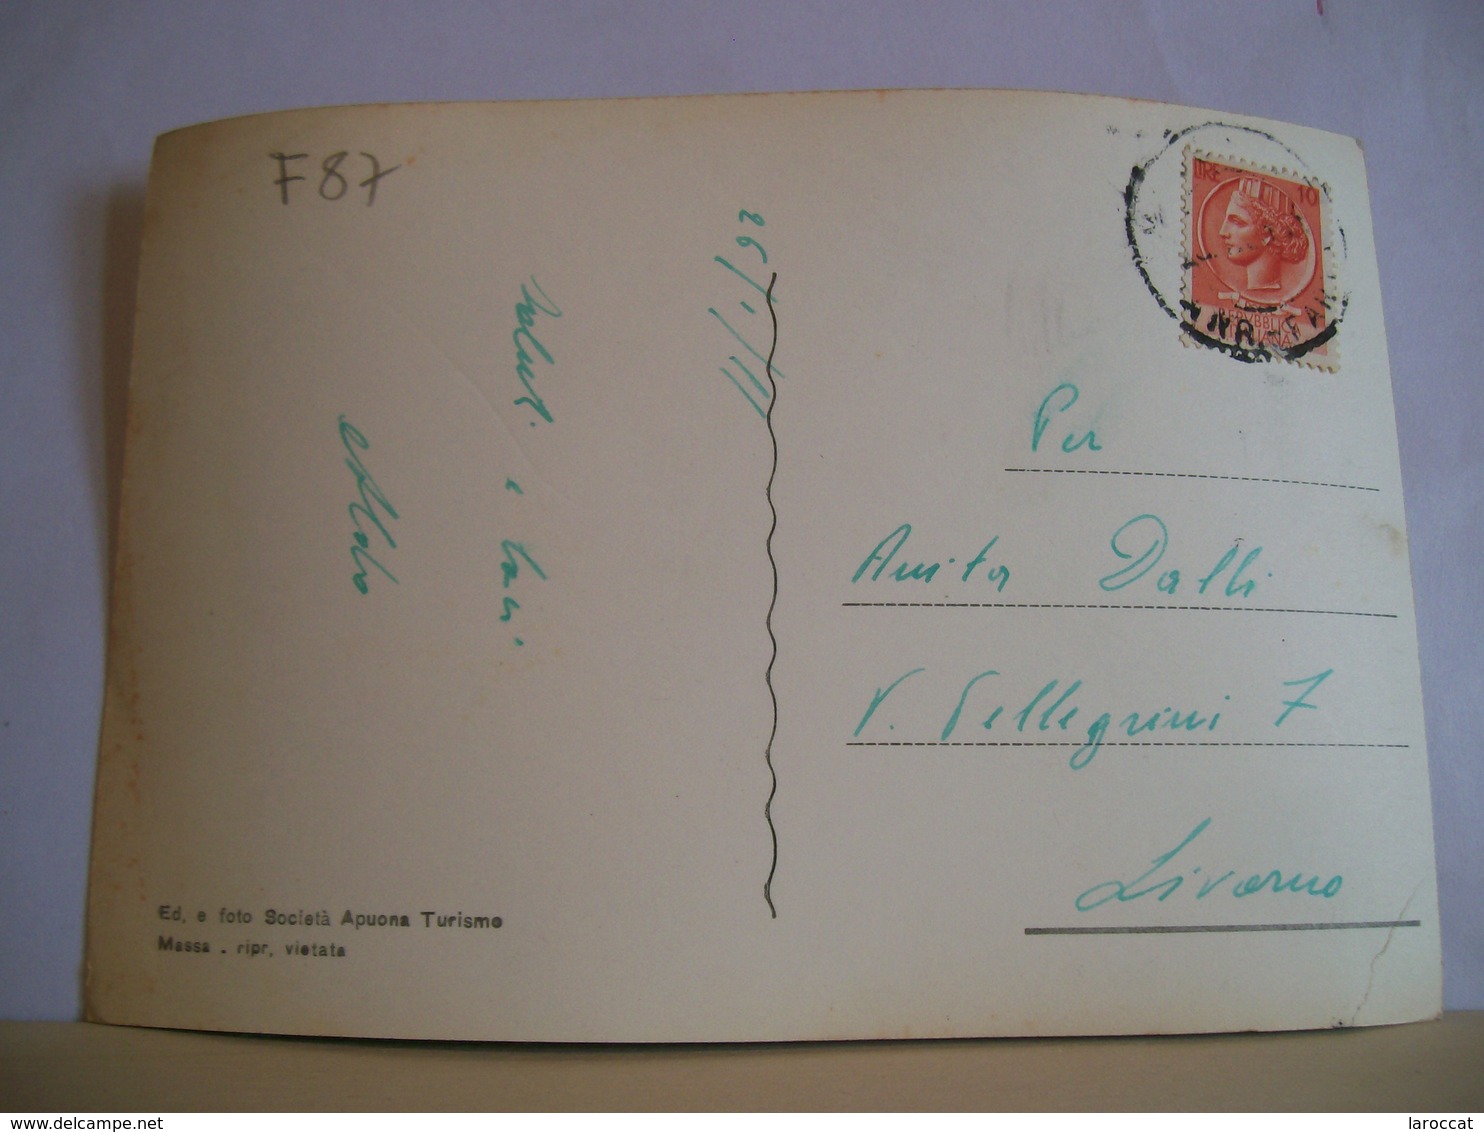 F87
26/1/
Saluti e baci
Aldo
Ed. e foto Società Apuana Turismo
Massa . ripr. vietata
LIRE 10
REPVBBLICA
ITALIANA
Per
Anita Dalli
V. Pellegrini 7
Livorno
www.delcampe.net
laroccat